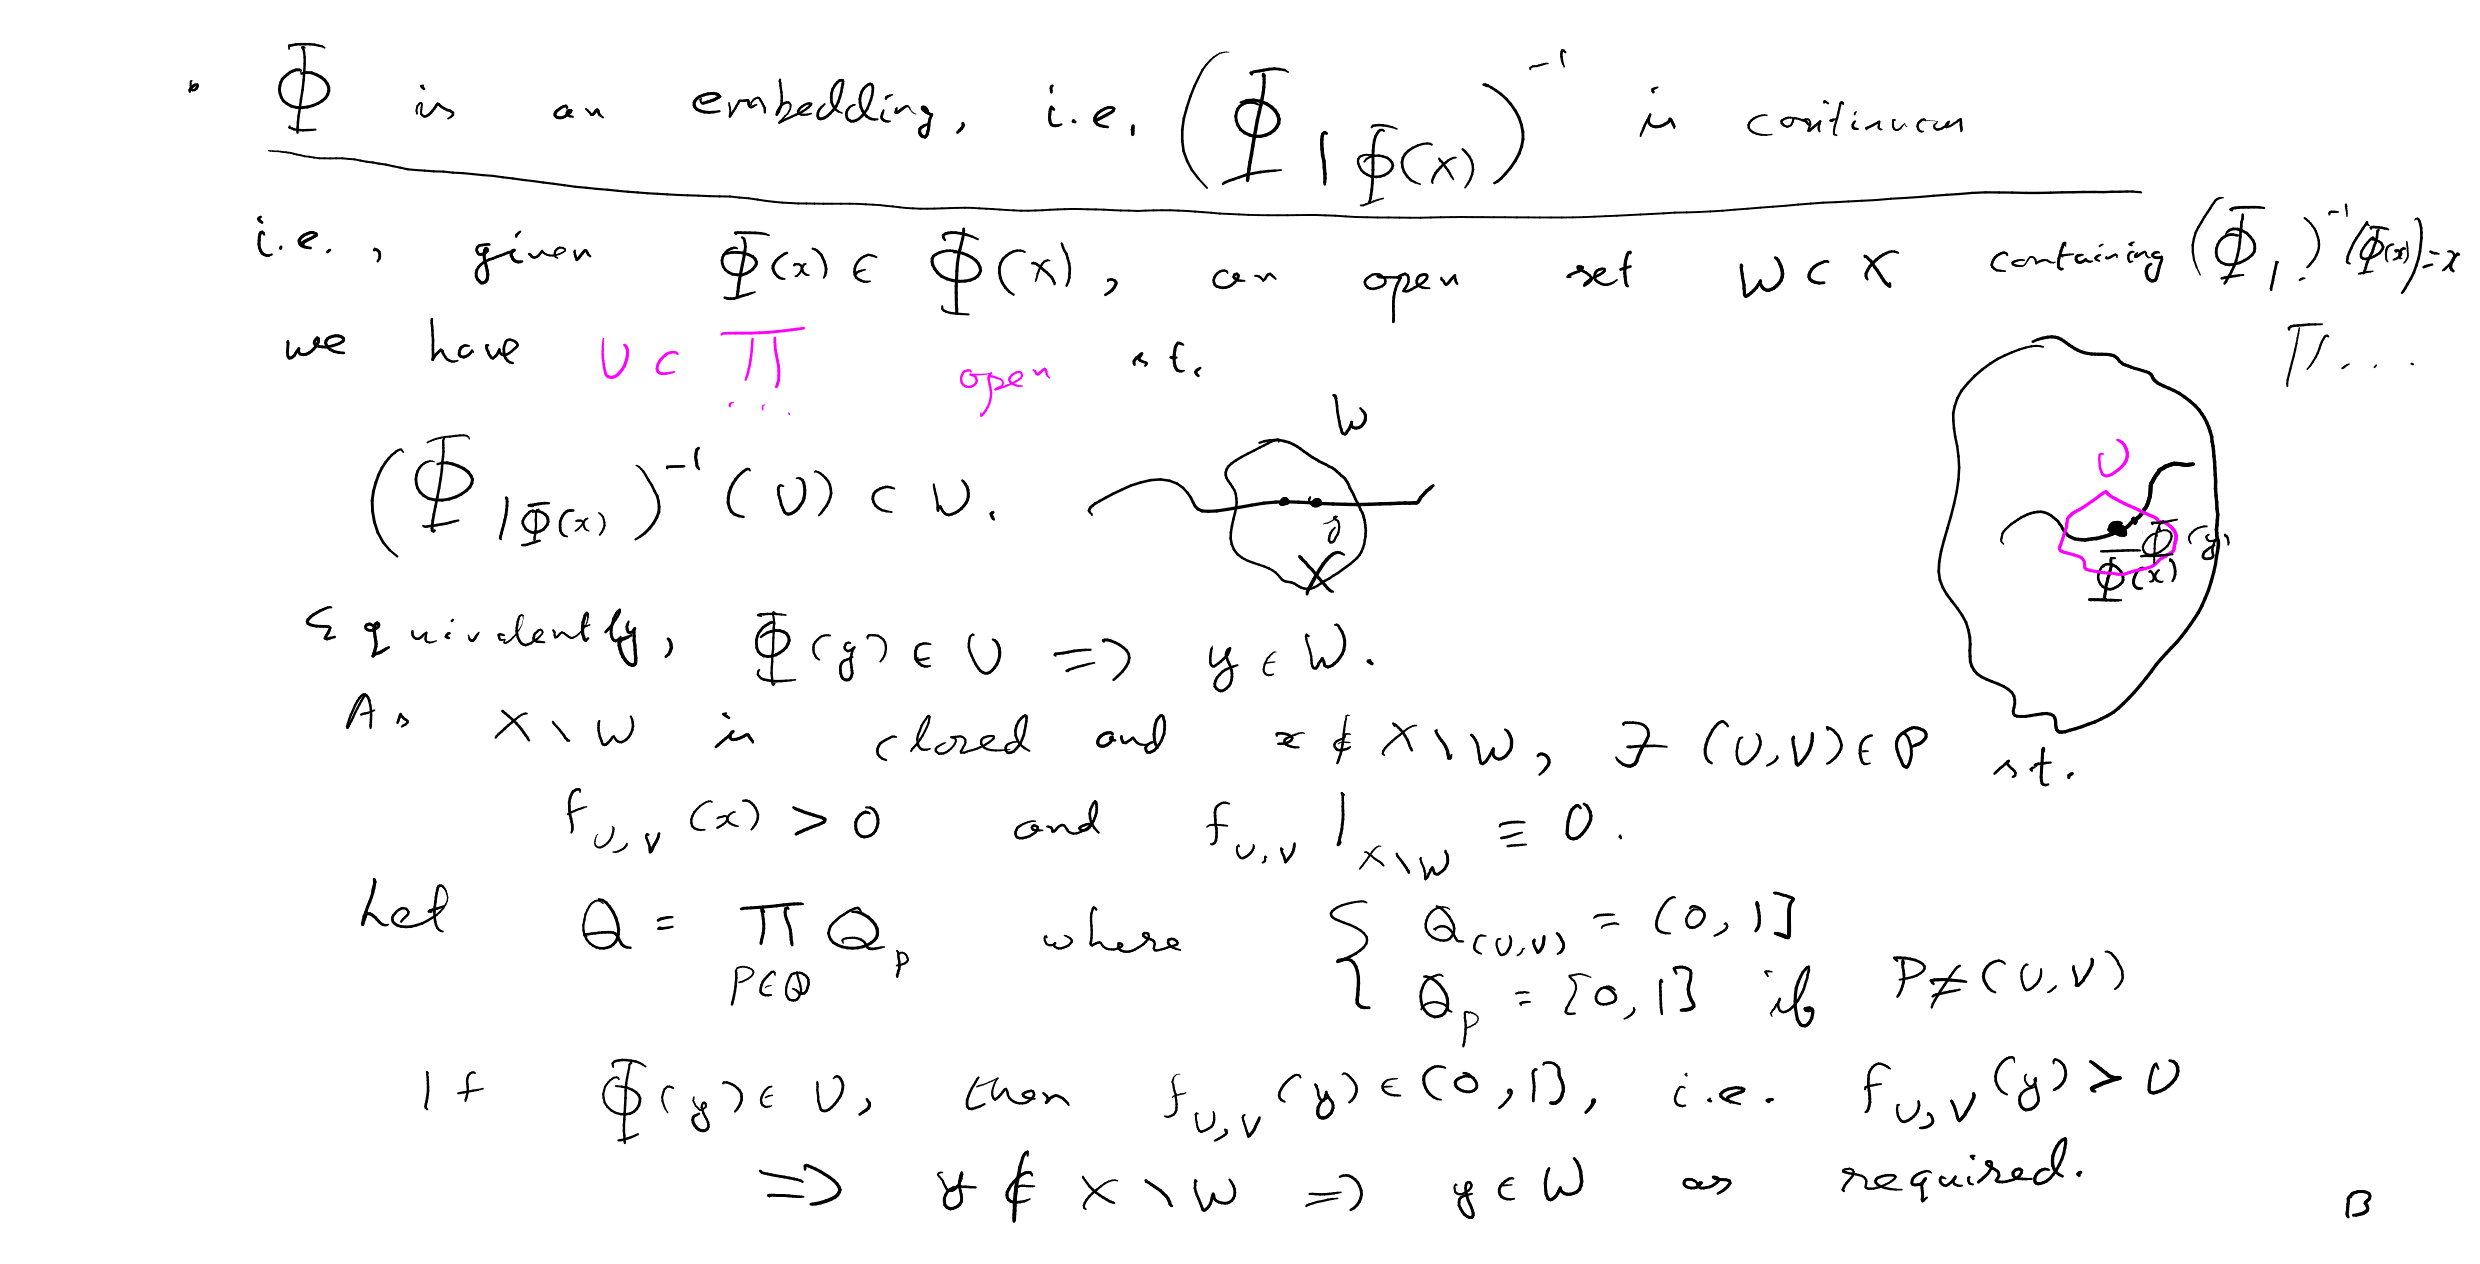 Φ is an embedding, i.e. (Φ|Φ(X))⁻¹ is continuous
i.e., given Φ(x) ∈ Φ(X), an open set W ⊂ X containing (Φ|.)⁻¹(Φ(x)) = x
we have U ⊂ Π... open st.
Π...
(Φ|Φ(x))⁻¹(U) ⊂ W.
W
y
X
U
Φ(y)
Φ(x)
Equivalently, Φ(y) ∈ U => y ∈ W.
As X∖W is closed and x ∉ X∖W, ∃ (U,V) ∈ P st.
f_{U,V}(x) > 0 and f_{U,V}|_{X∖W} ≡ 0.
Let Q = Π_{P∈P} Q_P where { Q_{(U,V)} = (0,1]
Q_P = [0,1] if P ≠ (U,V)
If Φ(y) ∈ U, then f_{U,V}(y) ∈ (0,1], i.e. f_{U,V}(y) > 0
=> y ∉ X∖W => y ∈ W as required.